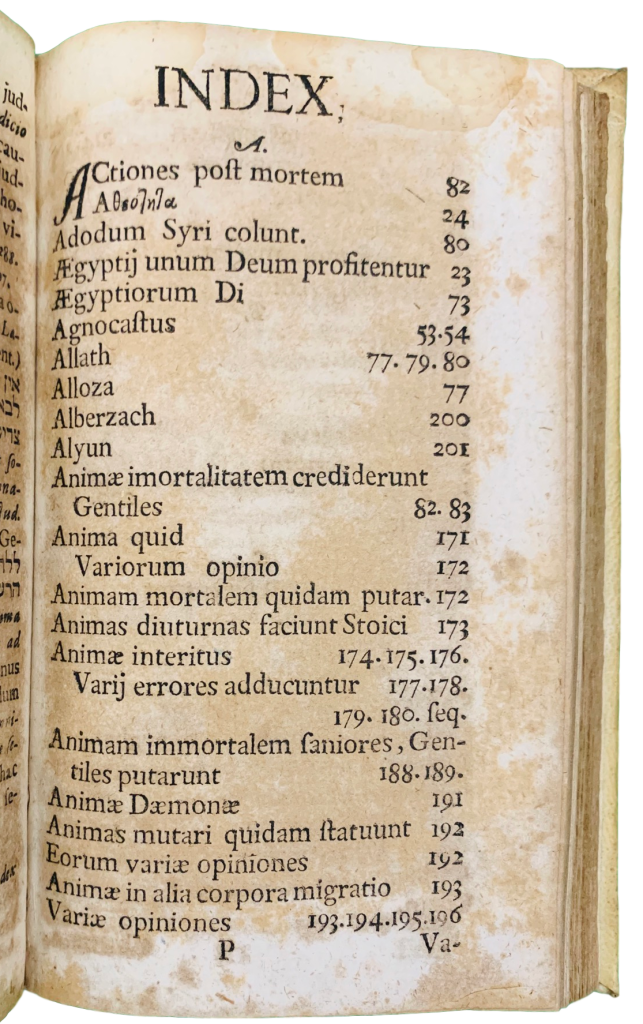 jud-
dicio
cau-
jud-
ho-
vi-
INDEX,
A.
ACtiones poſt mortem 82
Αθεοτητα 24
Adodum Syri colunt. 80
Ægyptij unum Deum profitentur 23
Ægyptiorum Di 73
Agnocaſtus 53.54
Allath 77. 79. 80
Alloza 77
Alberzach 200
Alyun 201
Animæ imortalitatem crediderunt
Gentiles 82. 83
Anima quid 171
Variorum opinio 172
Animam mortalem quidam putar. 172
Animas diuturnas faciunt Stoici 173
Animæ interitus 174. 175. 176.
Varij errores adducuntur 177.178.
179. 180. ſeq.
Animam immortalem ſaniores, Gen-
tiles putarunt 188.189.
Animæ Dæmonæ 191
Animas mutari quidam ſtatuunt 192
Eorum variæ opiniones 192
Animæ in alia corpora migratio 193
Variæ opiniones 193.194.195.196
P Va-